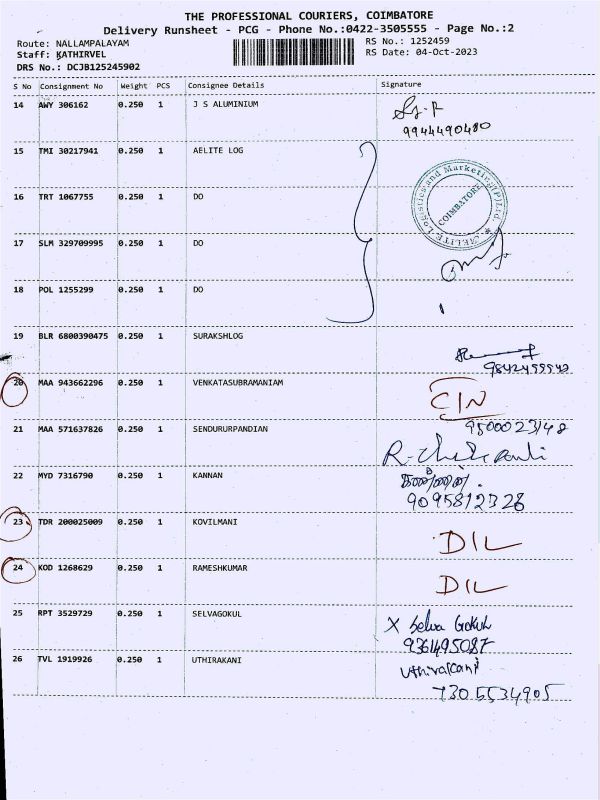 THE PROFESSIONAL COURIERS, COIMBATORE
Delivery Runsheet - PCG - Phone No.:0422-3505555 - Page No.:2
Route: NALLAMPALAYAM RS No.: 1252459
Staff: KATHIRVEL RS Date: 04-Oct-2023
DRS No.: DCJB125245902
S No Consignment No Weight PCS Consignee Details Signature
14 AWY 306162 0.250 1 J S ALUMINIUM
9944490480
15 TMI 30217941 0.250 1 AELITE LOG
AELITE Logistics and Marketing(P)Ltd.
COIMBATORE
16 TRT 1067755 0.250 1 DO
17 SLM 329709995 0.250 1 DO
18 POL 1255299 0.250 1 DO
19 BLR 6800390475 0.250 1 SURAKSHLOG
20 MAA 943662296 0.250 1 VENKATASUBRAMANIAM
C/N
21 MAA 571637826 0.250 1 SENDURURPANDIAN
9500023148
22 MYD 7316790 0.250 1 KANNAN
9095812328
23 TDR 200025009 0.250 1 KOVILMANI
D/L
24 KOD 1268629 0.250 1 RAMESHKUMAR
D/L
25 RPT 3529729 0.250 1 SELVAGOKUL
X Selva Gokul
936495087
26 TVL 1919926 0.250 1 UTHIRAKANI
Uthirakani
7305534905